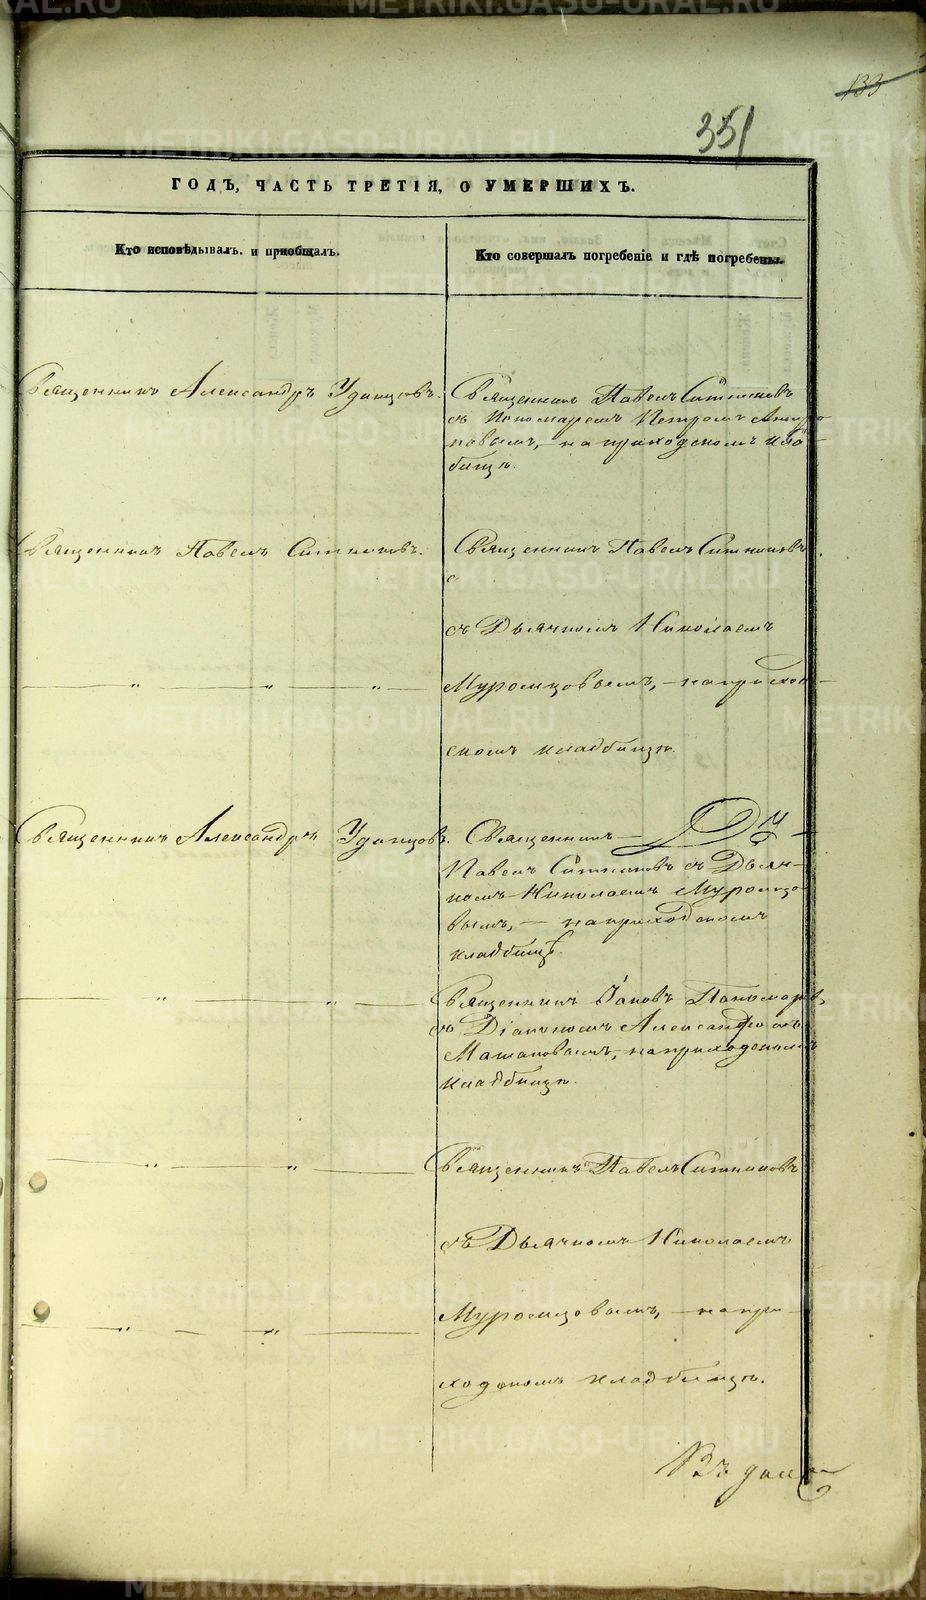 133
351
ГОДЪ, ЧАСТЬ ТРЕТІЯ, О УМЕРШИХЪ.
Кто исповѣдывалъ и пріобщалъ.
Кто совершалъ погребеніе и гдѣ погребены.
Священникъ Александръ Удинцовъ.
Священникъ Павелъ Ситниковъ
съ Пономаремъ Петромъ
на приходскомъ клад-
бищѣ.
Священникъ Павелъ Ситниковъ.
Священникъ Павелъ Ситниковъ
с
съ Дьячкомъ Николаемъ
Муромцовымъ, - на приход-
скомъ кладбищѣ.
Священникъ Александръ Удинцовъ.
Священникъ
Павелъ Ситниковъ съ Дьяч-
комъ Николаемъ Муромцо-
вымъ, - на приходскомъ
кладбищѣ.
Священникъ Іаковъ Пономаревъ,
съ Діакономъ Александромъ
на приходскомъ
кладбищѣ.
Священникъ Павелъ Ситниковъ
съ Дьячкомъ Николаемъ
Муромцовымъ, - на при-
ходскомъ кладбищѣ.
METRIKI.GASO-URAL.RU